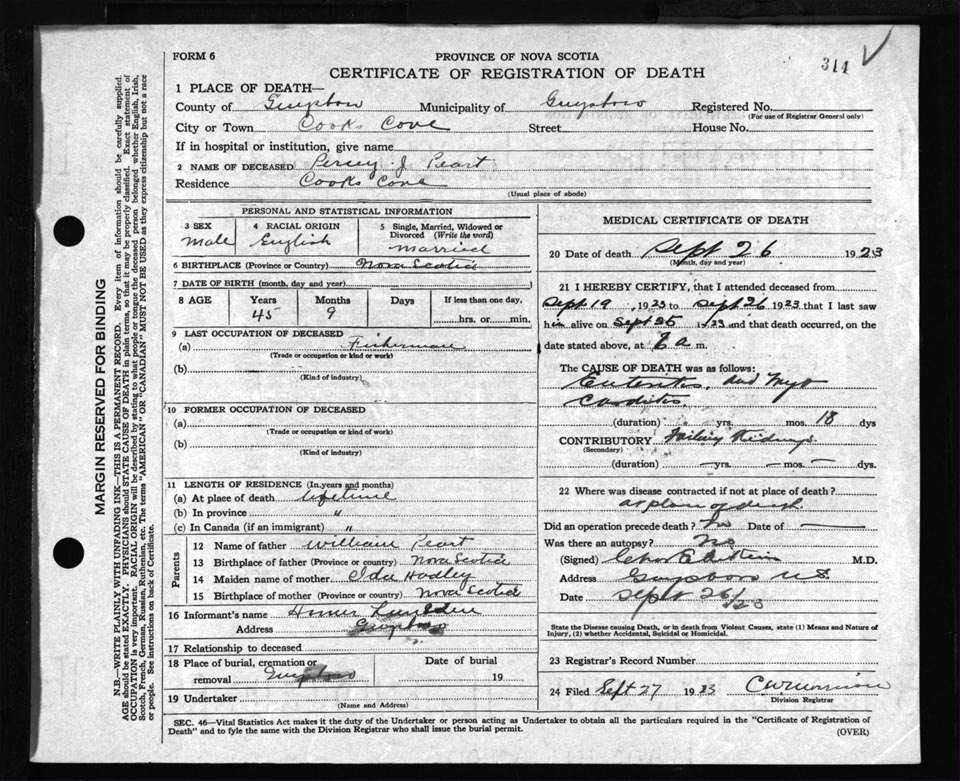 FORM 6
PROVINCE OF NOVA SCOTIA
CERTIFICATE OF REGISTRATION OF DEATH
314
1 PLACE OF DEATH—
County of Guysboro Municipality of Guysboro Registered No.
(For use of Registrar General only)
City or Town Cooks Cove Street House No.
If in hospital or institution, give name
2 NAME OF DECEASED Percy J Peart
Residence Cooks Cove
(Usual place of abode)
PERSONAL AND STATISTICAL INFORMATION
3 SEX Male
4 RACIAL ORIGIN English
5 Single, Married, Widowed or Divorced (Write the word) Married
6 BIRTHPLACE (Province or Country) Nova Scotia
7 DATE OF BIRTH (month, day and year)
8 AGE Years 45 Months 9 Days If less than one day, hrs. or min.
9 LAST OCCUPATION OF DECEASED
(a) Fisherman
(Trade or occupation or kind or work)
(b)
(Kind of industry)
10 FORMER OCCUPATION OF DECEASED
(a)
(Trade or occupation or kind of work)
(b)
(Kind of industry)
11 LENGTH OF RESIDENCE (In years and months)
(a) At place of death lifetime
(b) In province "
(c) In Canada (if an immigrant) "
Parents
12 Name of father William Peart
13 Birthplace of father (Province or country) Nova Scotia
14 Maiden name of mother Ida Hadley
15 Birthplace of mother (Province or country) Nova Scotia
16 Informant's name
Address Guysboro
17 Relationship to deceased
18 Place of burial, cremation or removal Guysboro
Date of burial 19
19 Undertaker
(Name and Address)
MEDICAL CERTIFICATE OF DEATH
20 Date of death Sept 26 1923
(Month, day and year)
21 I HEREBY CERTIFY, that I attended deceased from
Sept 19, 1923 to Sept 26 1923 that I last saw
him alive on Sept 25 1923 and that death occurred, on the
date stated above, at a m.
The CAUSE OF DEATH was as follows:
Enteritis and Myo
Carditis
(duration) yrs. mos. 18 dys
CONTRIBUTORY Failing Kidneys
(Secondary)
(duration) — yrs. — mos. — dys.
22 Where was disease contracted if not at place of death?
at place of death
Did an operation precede death? No Date of —
Was there an autopsy? No
(Signed) M.D.
Address Guysboro NS
Date Sept 26/23
State the Disease causing Death, or in death from Violent Causes, state (1) Means and Nature of
Injury, (2) whether Accidental, Suicidal or Homicidal.
23 Registrar's Record Number
24 Filed Sept 27 1923
Division Registrar
SEC. 46—Vital Statistics Act makes it the duty of the Undertaker or person acting as Undertaker to obtain all the particulars required in the "Certificate of Registration of
Death" and to fyle the same with the Division Registrar who shall issue the burial permit.
(OVER)
MARGIN RESERVED FOR BINDING
N.B.—WRITE PLAINLY WITH UNFADING INK—THIS IS A PERMANENT RECORD. Every item of information should be carefully supplied.
AGE should be stated EXACTLY. PHYSICIANS should STATE CAUSE OF DEATH in plain terms, so that it may be properly classified. Exact statement of
OCCUPATION is very important. RACIAL ORIGIN will be described by stating to what people or tongue the deceased person belonged whether English, Irish,
Scotch, French, German, Russian, Ruthenian, etc. The terms "AMERICAN" OR "CANADIAN" MUST NOT BE USED as they express citizenship but not a race
or people. See instructions on back of Certificate.